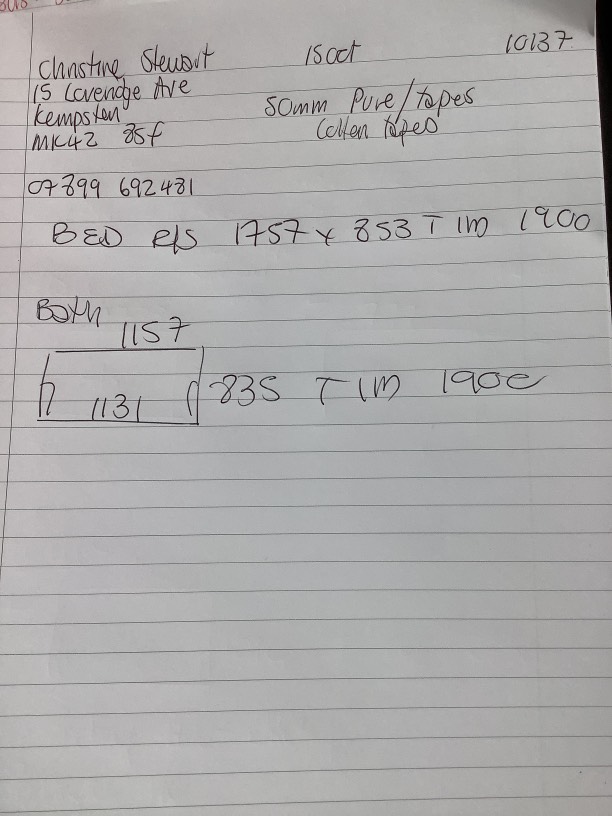 Christine Stewart 15 oct 10137
15 Cavendge Ave
Kempston 50mm Pure/tapes
MK42 8SF Cotten tapes
07899 692481
BED R/S 1757 x 853 T 1M 1900
Both
1157
1131 835 T 1M 1900